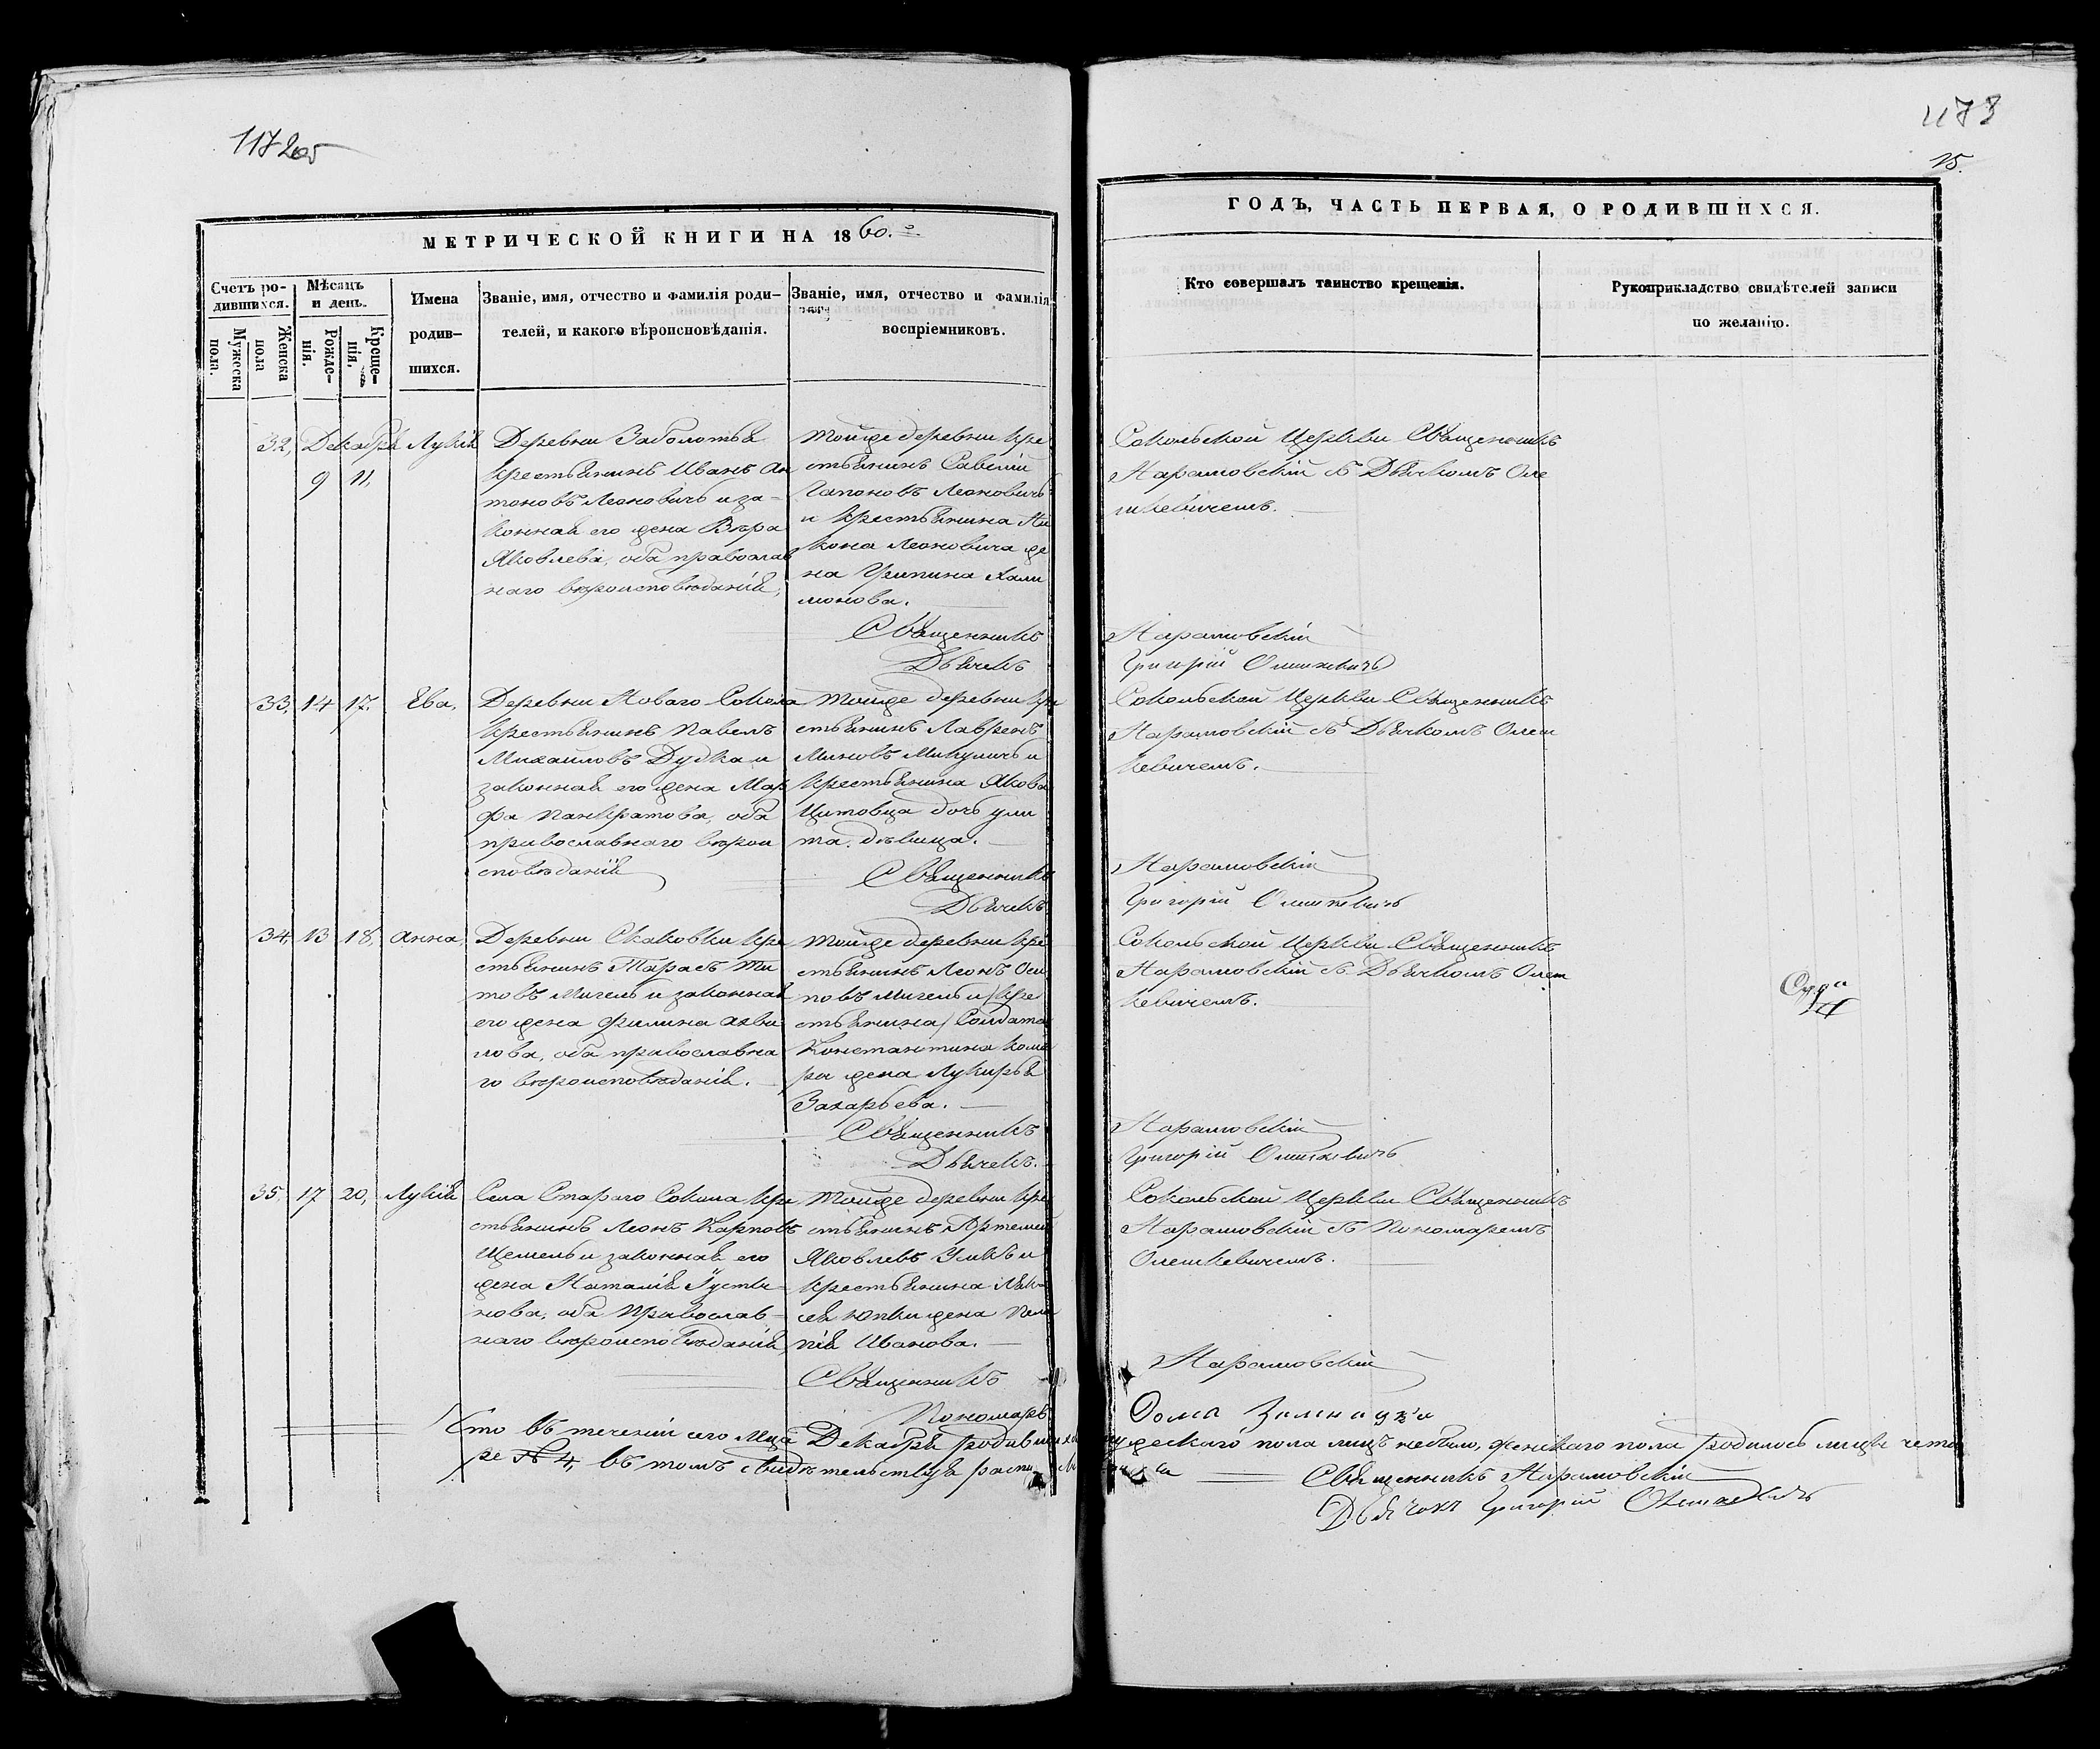 1172об
1173
25.
МЕТРИЧЕСКОЙ КНИГИ НА 1860.
ГОДЪ, ЧАСТЬ ПЕРВАЯ, О РОДИВШИХСЯ.
Счетъ ро-
дившихся.
Мужеска
пола.
Женска
пола
Мѣсяцъ
и день.
Рожде-
нія.
Креще-
нія.
Имена
родив-
шихся.
Званіе, имя, отчество и фамилія роди-
телей, и какого вѣроисповѣданія.
Званіе, имя, отчество и фамилія
воспріемниковъ.
Кто совершалъ таинство крещенія.
Рукоприкладство свидѣтелей записи
по желанію.
32, Декабря Лукія
9 11,
Деревни Заболотья
крестьянинъ Иванъ Ан
тоновъ Леоновичъ и за-
конная его жена Вѣра
Яковлева, оба православ
наго вѣроисповѣданія,
тойже деревни кре
стьянинъ Савелій
Гапоновъ Леоновичъ
и крестьянина Ни
кона Леоновича же
на Гриппина Хали
монова.
Священникъ
Дьячекъ
Сокольской Церкви Священникъ
Нарановскій съ Дьячкомъ Оле
шкевичемъ.
Нарановскій
Григорій Олешкевичъ
33, 14 17. Ева,
Деревни Новаго Сокола
крестьянинъ Павелъ
Михайловъ Дудка и
законная его жена Мар
фа Панкратова, оба
православнаго вѣрои
сповѣданія
тойже деревни кре
стьянинъ Лаврѣнъ
Миновъ Микуличъ и
крестьянина Якова
Цитовца дочь Ули
та. дѣвица.
Священникъ
Дьячекъ
Сокольской Церкви Священникъ
Нарановскій съ Дьячкомъ Олеш
кевичемъ.
Нарановскій
Григорій Олешкевичъ
34, 13 18, Анна,
Деревни Скаковки кре
стьянинъ Тарасъ Ти
товъ Мигель и законная
его жена
оба православна
го вѣроисповѣданія.
тойже деревни кре
стьянинъ Леонъ Оси
повъ Мигель и (кре
стьянина) Солдата
Константина Кома
ра жена Лукирья
Захарьева.
Священникъ
Дьячекъ.
Сокольской Церкви Священникъ
Нарановскій съ Дьячкомъ Олеш
кевичемъ.
Нарановскій
Григорій Олешкевичъ
35, 17 20, Лукія
Села Стараго Сокола кре
стьянинъ Леонъ Карповъ
и законная его
жена Наталія Густи-
нова, оба Православ-
наго вѣроисповѣданія,
тойже деревни кре
стьянинъ Артемій
Яковлевъ и
крестьянина
жена Пела
гія Иванова.
Священникъ
Пономарь
Сокольской Церкви Священникъ
Нарановскій съ Пономаремъ
Олешкевичемъ.
Нарановскій
Фома
Что въ теченіи сего Мца Декабря родивши
мужескаго пола лицъ небыло, женскаго пола родилось лицъ четы
ре № 4, въ томъ свидѣтельствуя
Священникъ Нарановскій
Дьячокъ Григорій Олешкевичъ